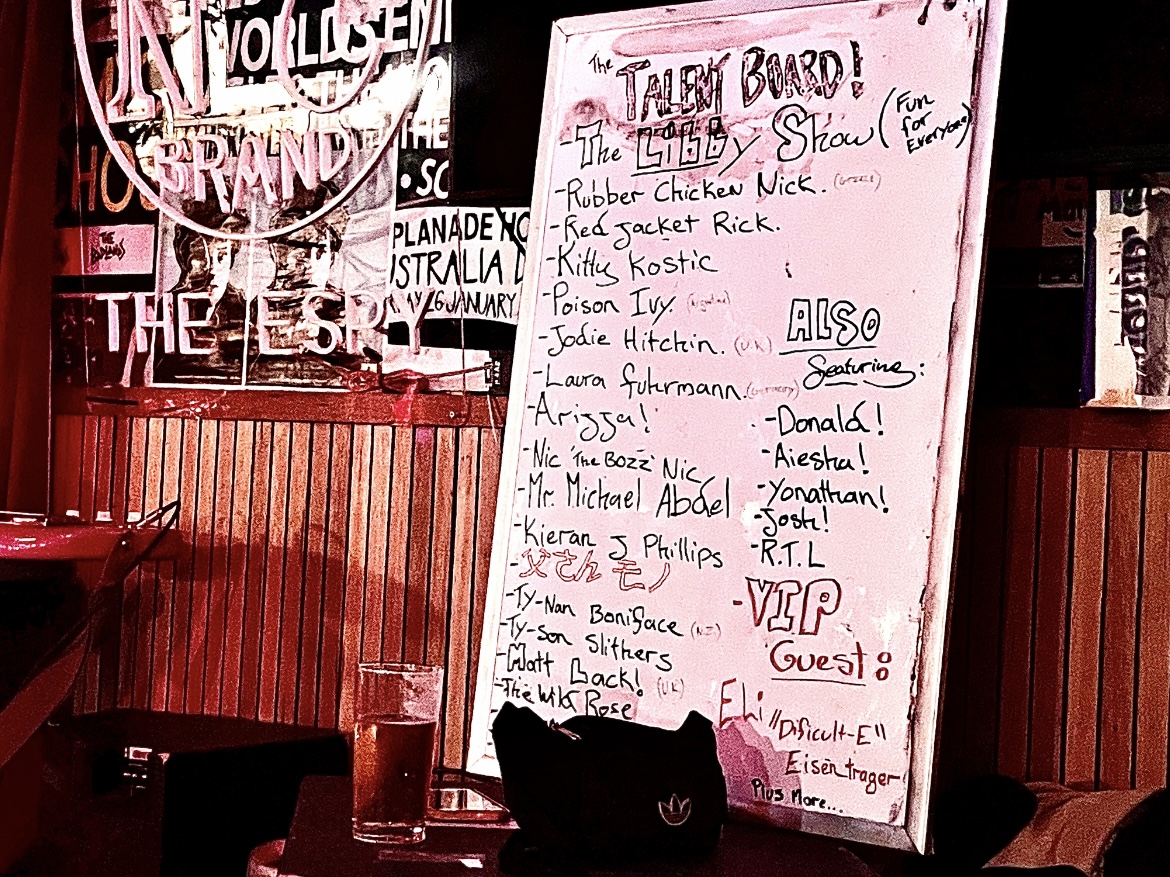 WORLDS EN
BRAND
HO
THE
• SC
PLANADE HO
STRALIA D
6 JANUARY
THE ESPY
The
TALENT BOARD!
-The LiBBy Show (Fun
for
Everyone)
-Rubber Chicken Nick. (Greece)
-Red Jacket Rick.
-Kitty Kostic
-Poison Ivy. (Argentina)
-Jodie Hitchin. (U.K)
-Laura fuhrmann. (Germany)
-Arigga!
-Nic 'The Bozz' Nic
-Mr. Michael Abdel
-Kieran J Phillips
-父さん モノ
-Ty-Nan Boniface (N.Z)
-Ty-son Slithers
-Matt Back! (U.K)
-The Wild Rose
ALSO
featuring:
-Donald!
-Aiesha!
-Yonathan!
-Josh!
-R.T.L
-VIP
Guest:
Eli "Dificult-E"
Eisentrager
Plus More...